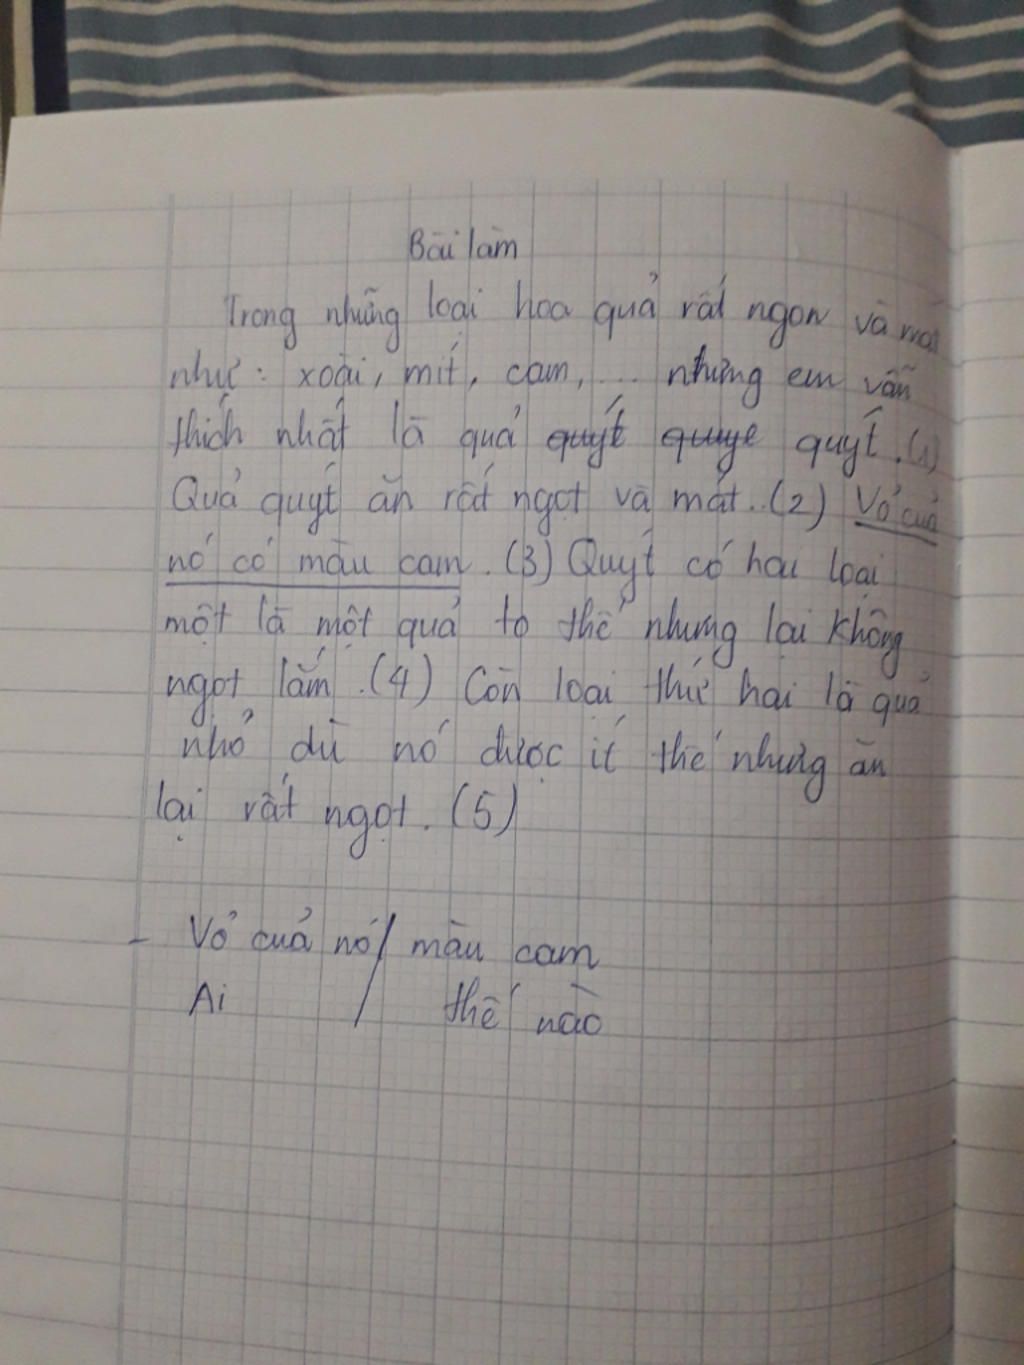 Bài làm
Trong những loại hoa quả rất ngon và mát
như: xoài, mít, cam,... nhưng em vẫn
thích nhất là quả quýt quuye quýt.(1)
Quả quýt ăn rất ngọt và mát..(2) Vỏ của
nó có màu cam.(3) Quýt có hai loại
một là một quả to thế nhưng lại không
ngọt lắm.(4) Còn loại thứ hai là quả
nhỏ dù nó được ít thế nhưng ăn
lại rất ngọt.(5)
- Vỏ của nó / màu cam
Ai / thế nào